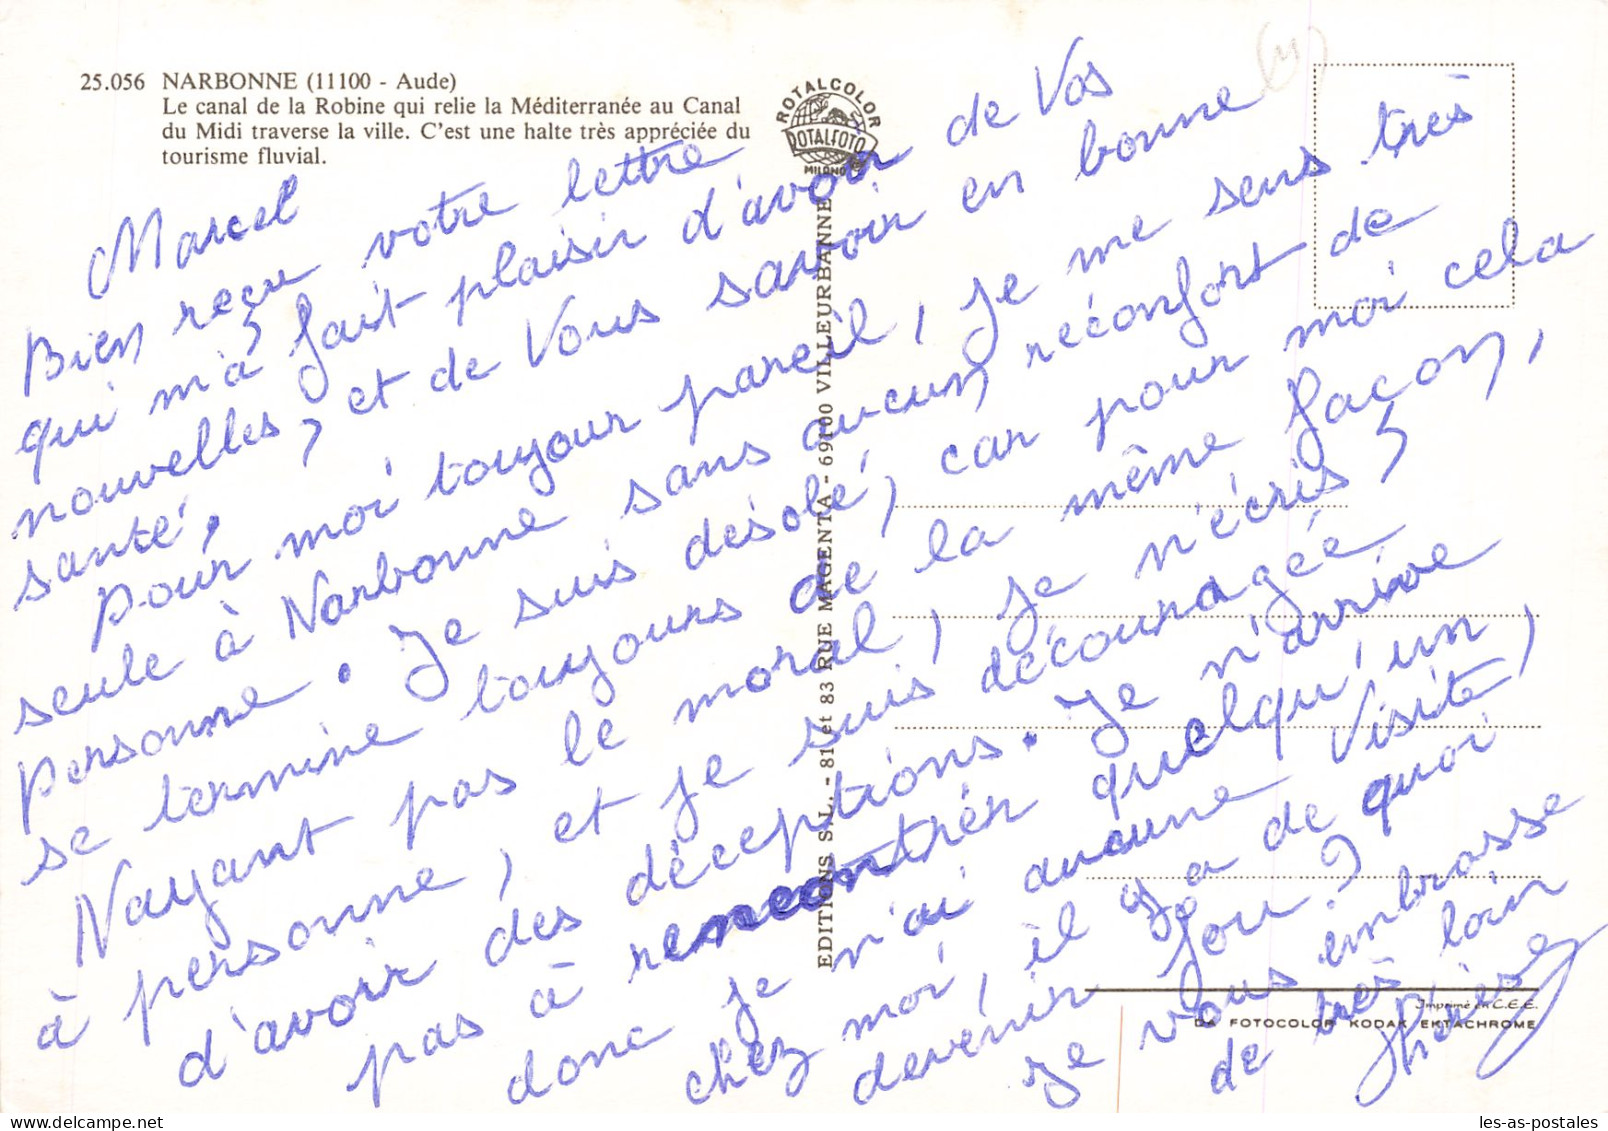 25.056 NARBONNE (11100 - Aude)
Le canal de la Robine qui relie la Méditerranée au Canal
du Midi traverse la ville. C'est une halte très appréciée du
tourisme fluvial.
ROTALCOLOR
ROTALFOTO
MILANO
EDITIONS S.L. - 81 et 83 RUE MAGENTA - 69100 VILLEURBANNE
Marcel
Bien reçu votre lettre
qui m'à fait plaisir d'avoir de Vos
nouvelles, et de Vous savoir en bonne
santé,
pour moi toujour pareil, je me sens très
seule à Narbonne sans aucun réconfort de
personne. Je suis désolé, car pour moi cela
se termine toujours de la même façon,
Nayant pas le moral, je n'écris,
à personne, et je suis découragée
d'avoir des déceptions. Je n'arrive
pas à rencontrér quelqu'un
donc je n'ai aucune Visite,
chez moi, il y a de quoi
devenir fou?
Je vous embrasse
de très loin
Thérèse
Imprimé en C.E.E.
DA FOTOCOLOR KODAK EKTACHROME
les-as-postales